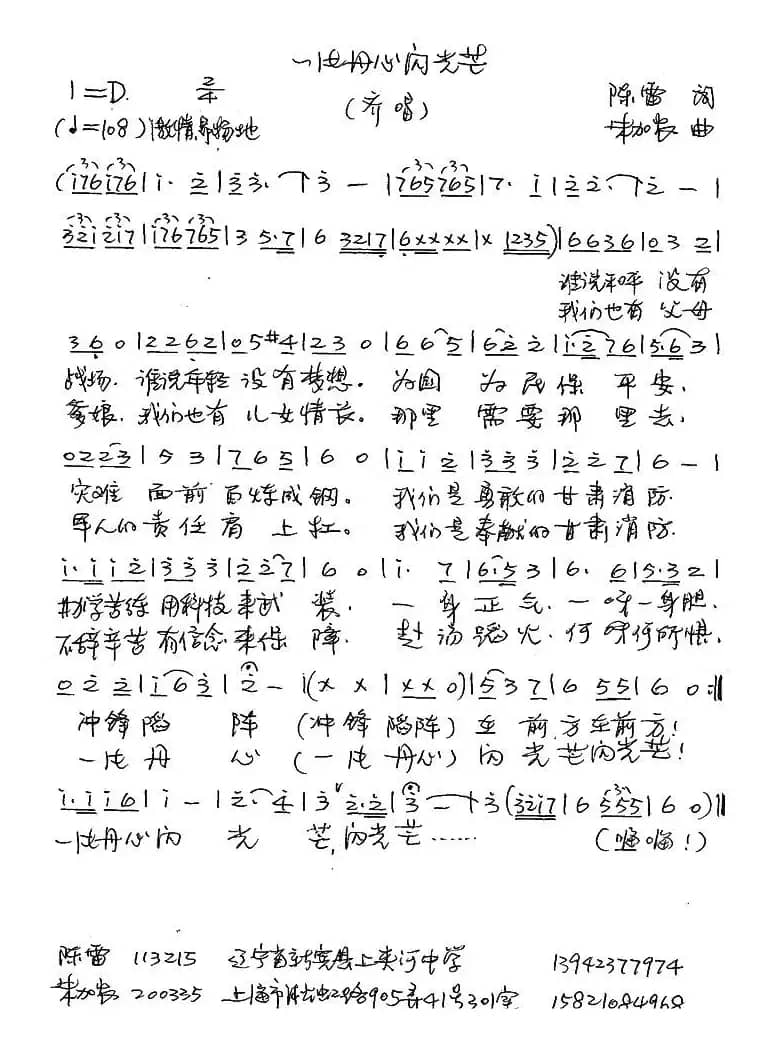 一片丹心闪光芒
1=D 2/4
(齐唱)
陈雷 词
(♩=108) 激情昂扬地
朱加农 曲
(i76 i76 | i· 2 | 3 3· 3 — | 765 765 | 7· i | 2 2· 2 — |
32i 2i7 | i76 765 | 3 5·7 | 6 3217 | 6xxxx | x 1235) | 6636 | 0 3 2 |
谁说和平 没有
我们也有 父母
3 6 0 | 2262 | 0 5 #4 | 2 3 0 | 6 6 5 | 6 2 2 | i·2 7 6 | 5·6 3 |
战场，谁说年轻 没有梦想。为国 为民保 平安，
爹娘，我们也有 儿女情长。那里 需要那 里去，
0 2 2 3 | 5 3 | 7 6 5 | 6 0 | i i 2 | 3 3 3 | 2 2 7 | 6 — |
灾难 面前 百炼成钢。 我们是 勇敢的 甘肃消防
军人的 责任 肩 上扛。 我们是 奉献的 甘肃消防
i· i i 2 | 3 3 3 | 2 2 7 | 6 0 | i· 7 | 6·5 3 | 6· 6 | 5·3 2 |
勤学苦练 用科技 来武 装， 一 身 正 气，一 呀 一身胆，
不辞辛苦 有信念 来保 障， 赴 汤 蹈 火，何 呀 何所惧，
0 2 2 | i 6 3 | 2 — | (x x | x x 0) | 5 3 7 | 6 5 5 | 6 0 :||
冲锋陷 阵 (冲锋陷阵) 在 前方在前方！
一片丹 心 (一片丹心) 闪 光芒闪光芒！
i· i i 6 | i — | 2· 4 | 3 2·2 | 3 — 3 (32i7 | 6 555 | 6 0) ||
一片丹心闪 光 芒，闪光芒…… (嗨嗨！)
陈雷 113215 辽宁省新宾县上夹河中学 13942377974
朱加农 200335 上海市 路905弄41号301室 15821084968